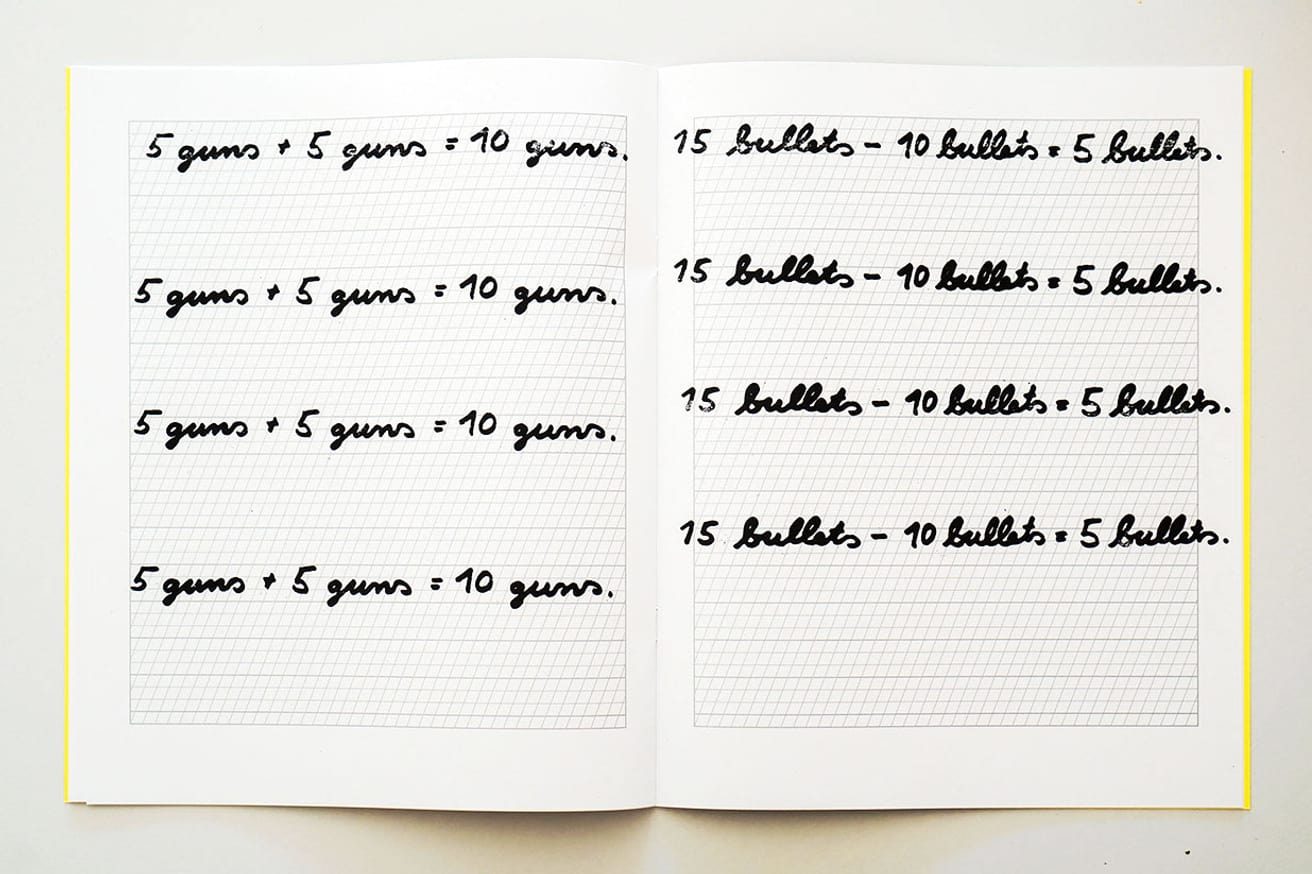 5 guns + 5 guns = 10 guns.
5 guns + 5 guns = 10 guns.
5 guns + 5 guns = 10 guns.
5 guns + 5 guns = 10 guns.
15 bullets - 10 bullets = 5 bullets.
15 bullets - 10 bullets = 5 bullets.
15 bullets - 10 bullets = 5 bullets.
15 bullets - 10 bullets = 5 bullets.